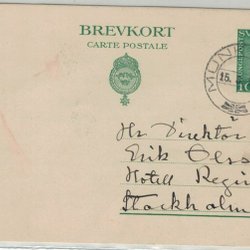 BREVKORT
CARTE POSTALE
MUN
15.
10
Hr Direktör
Erik Ols
Hotell Regin
Stockholm